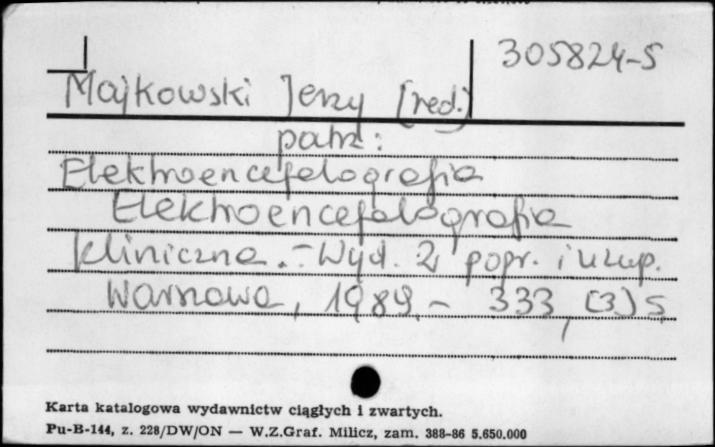 305824-S
Majkowski Jerzy [red.]
patrz:
Elektroencefalografia
Elektroencefalografia
kliniczna. - Wyd. 2 popr. i uzup.
Warszawa, 1989. - 333, [3] s.
Karta katalogowa wydawnictw ciągłych i zwartych.
Pu-B-144, z. 228/DW/ON — W.Z.Graf. Milicz, zam. 388-86 5.650.000